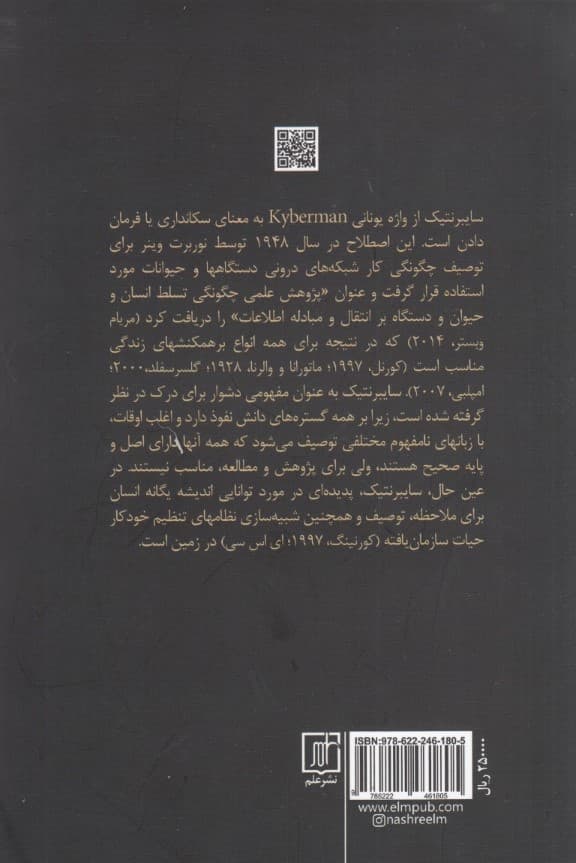 سایبرنتیک از واژه یونانی Kyberman به معنای سکانداری یا فرمان
دادن است. این اصطلاح در سال ۱۹۴۸ توسط نوربرت وینر برای
توصیف چگونگی کار شبکه‌های درونی دستگاهها و حیوانات مورد
استفاده قرار گرفت و عنوان «پژوهش علمی چگونگی تسلط انسان و
حیوان و دستگاه بر انتقال و مبادله اطلاعات» را دریافت کرد (مریام
وبستر، ۲۰۱۴) که در نتیجه برای همه انواع برهمکنشهای زندگی
مناسب است (کورنل، ۱۹۹۷؛ ماتورانا و والرنا، ۱۹۲۸؛ گلسرسفلد، ۲۰۰۰؛
امپلبی، ۲۰۰۷). سایبرنتیک به عنوان مفهومی دشوار برای درک در نظر
گرفته شده است، زیرا بر همه گستره‌های دانش نفوذ دارد و اغلب اوقات،
با زبانهای نامفهوم مختلفی توصیف می‌شود که همه آنها دارای اصل و
پایه صحیح هستند، ولی برای پژوهش و مطالعه، مناسب نیستند. در
عین حال، سایبرنتیک، پدیده‌ای در مورد توانایی اندیشه یگانه انسان
برای ملاحظه، توصیف و همچنین شبیه‌سازی نظامهای تنظیم خودکار
حیات سازمان‌یافته (کورنینگ، ۱۹۹۷؛ ای اس سی) در زمین است.
نشر علم
ISBN: 978-622-246-180-5
9 786222 461805
www.elmpub.com
@nashreelm
۲۵۰۰۰۰ ریال